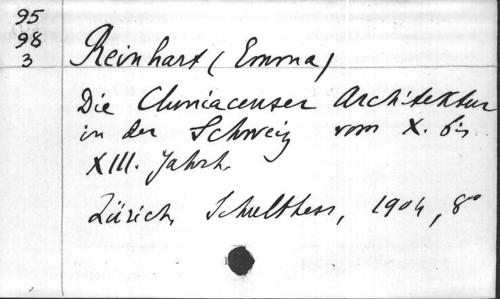 95
98
3
Reinhart (Emma)
Die Cluniacenser Architektur
in der Schweiz vom X. bis
XIII. Jahrh.
Zürich, Schulthess, 1904, 8°